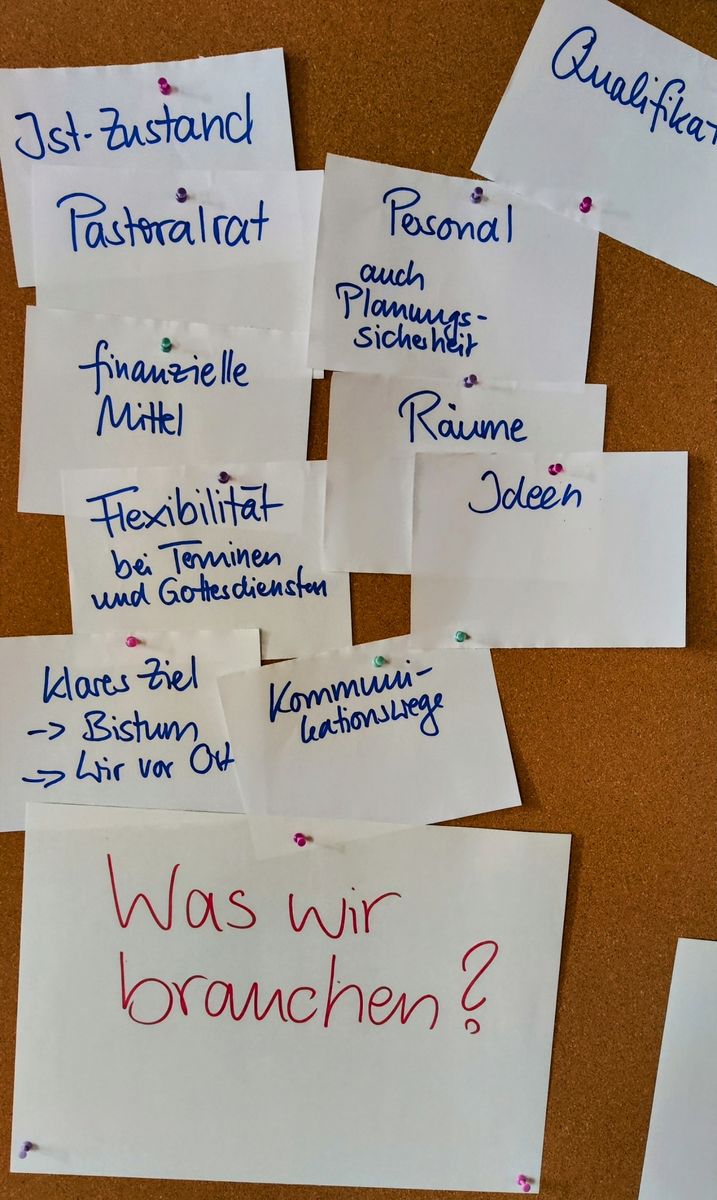 Qualifikat
Ist-Zustand
Pastoralrat
Personal
auch
Planungs-
sicherheit
finanzielle
Mittel
Räume
Flexibilität
bei Terminen
und Gottesdiensten
Ideen
klares Ziel
-> Bistum
-> Wir vor Ort
Kommuni-
kationswege
Was wir
brauchen?